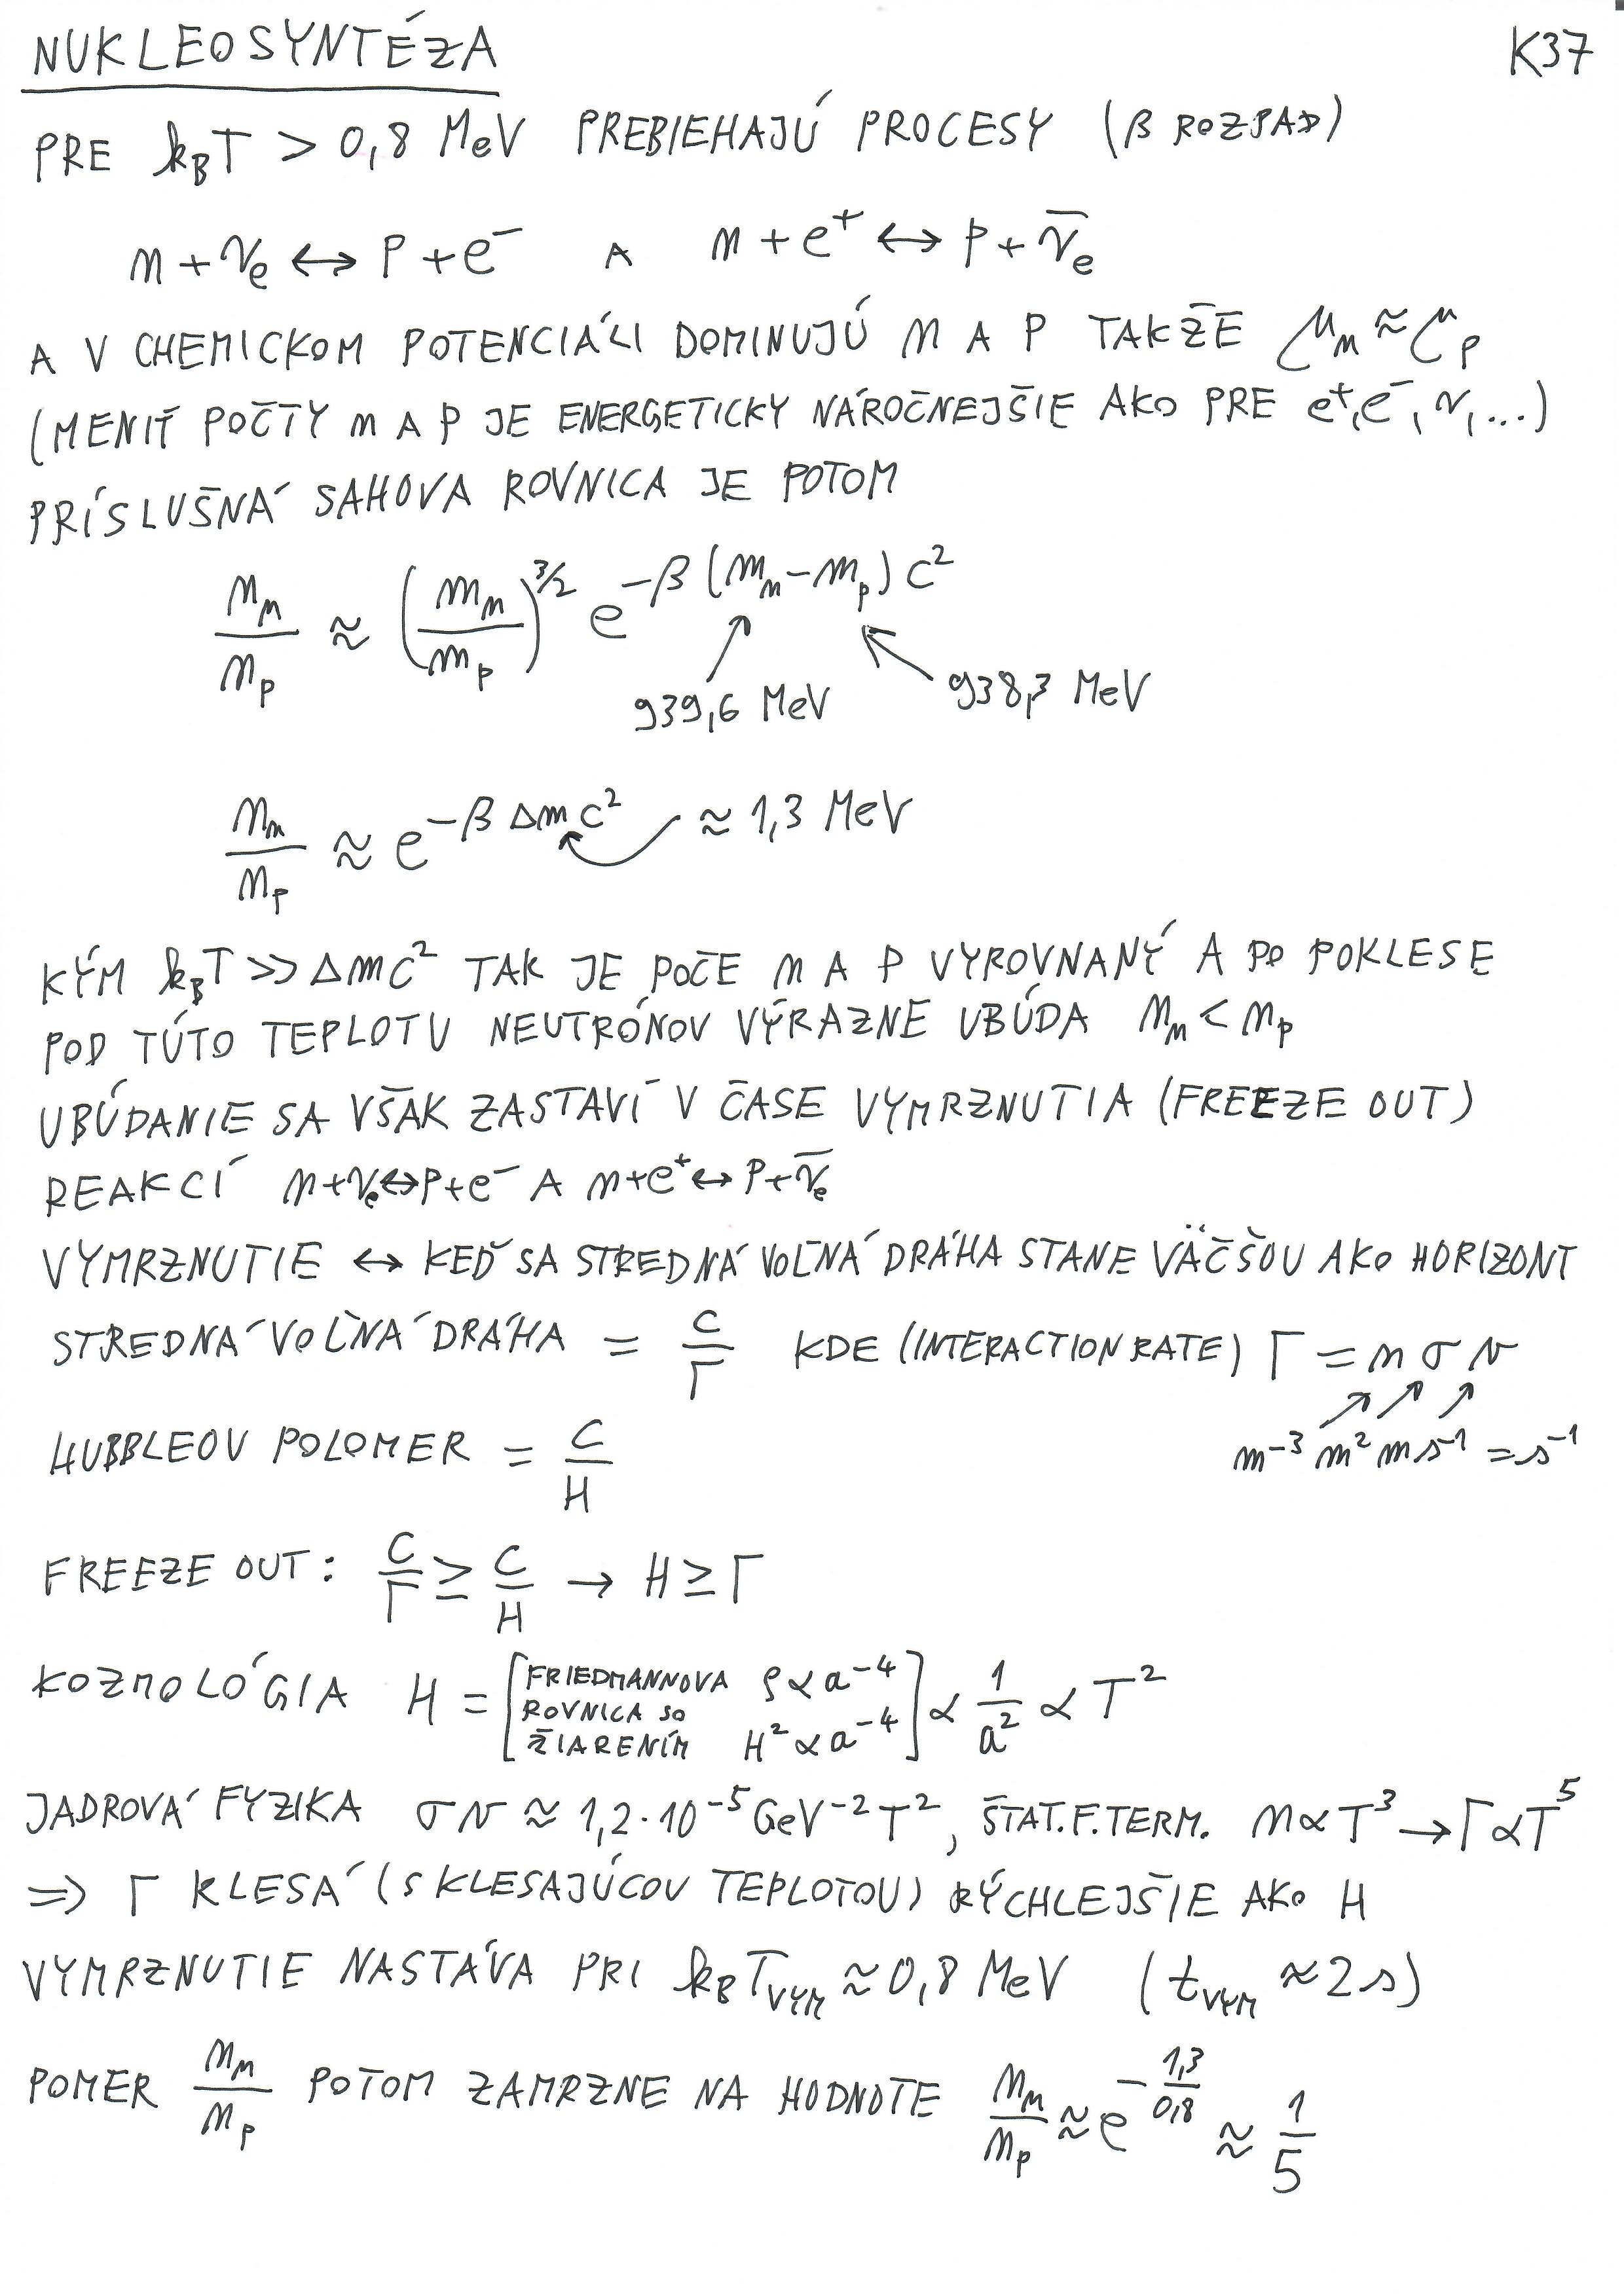 NUKLEOSYNTÉZA K37
PRE k_BT > 0,8 MeV PREBIEHAJÚ PROCESY (β ROZPAD)
n + ν_e ↔ p + e⁻ A n + e⁺ ↔ p + ν̄_e
A V CHEMICKOM POTENCIÁLI DOMINUJÚ n A P TAKŽE μ_n ≈ μ_p
(MENIŤ POČTY n A P JE ENERGETICKY NÁROČNEJŠIE AKO PRE e⁺, e⁻, ν, ...)
PRÍSLUŠNÁ SAHOVA ROVNICA JE POTOM
n_n/n_p ≈ (m_n/m_p)^{3/2} e^{-β(m_n-m_p)c²}
939,6 MeV 938,3 MeV
n_n/n_p ≈ e^{-βΔmc²} ≈ 1,3 MeV
KÝM k_BT >> Δmc² TAK JE POČE n A P VYROVNANÝ A PO POKLESE
POD TÚTO TEPLOTU NEUTRÓNOV VÝRAZNE UBÚDA n_n < n_p
UBÚDANIE SA VŠAK ZASTAVÍ V ČASE VYMRZNUTIA (FREEZE OUT)
REAKCÍ n+ν_e↔p+e⁻ A n+e⁺↔p+ν̄_e
VYMRZNUTIE ↔ KEĎ SA STREDNÁ VOĽNÁ DRÁHA STANE VÄČŠOU AKO HORIZONT
STREDNÁ VOĽNÁ DRÁHA = c/Γ KDE (INTERACTION RATE) Γ = n σ v
m⁻³ m² m s⁻¹ = s⁻¹
HUBBLEOV POLOMER = c/H
FREEZE OUT: c/Γ ≥ c/H → H ≥ Γ
KOZMOLÓGIA H = [FRIEDMANNOVA ROVNICA SO ŽIARENÍM ρ ∝ a⁻⁴ H² ∝ a⁻⁴] ∝ 1/a² ∝ T²
JADROVÁ FYZIKA σv ≈ 1,2·10⁻⁵ GeV⁻² T², ŠTAT.F.TERM. n ∝ T³ → Γ ∝ T⁵
⇒ Γ KLESÁ (S KLESAJÚCOV TEPLOTOU) RÝCHLEJŠIE AKO H
VYMRZNUTIE NASTÁVA PRI k_BT_VYM ≈ 0,8 MeV (t_VYM ≈ 2 s)
POMER n_n/n_p POTOM ZAMRZNE NA HODNOTE n_n/n_p ≈ e^{-1,3/0,8} ≈ 1/5